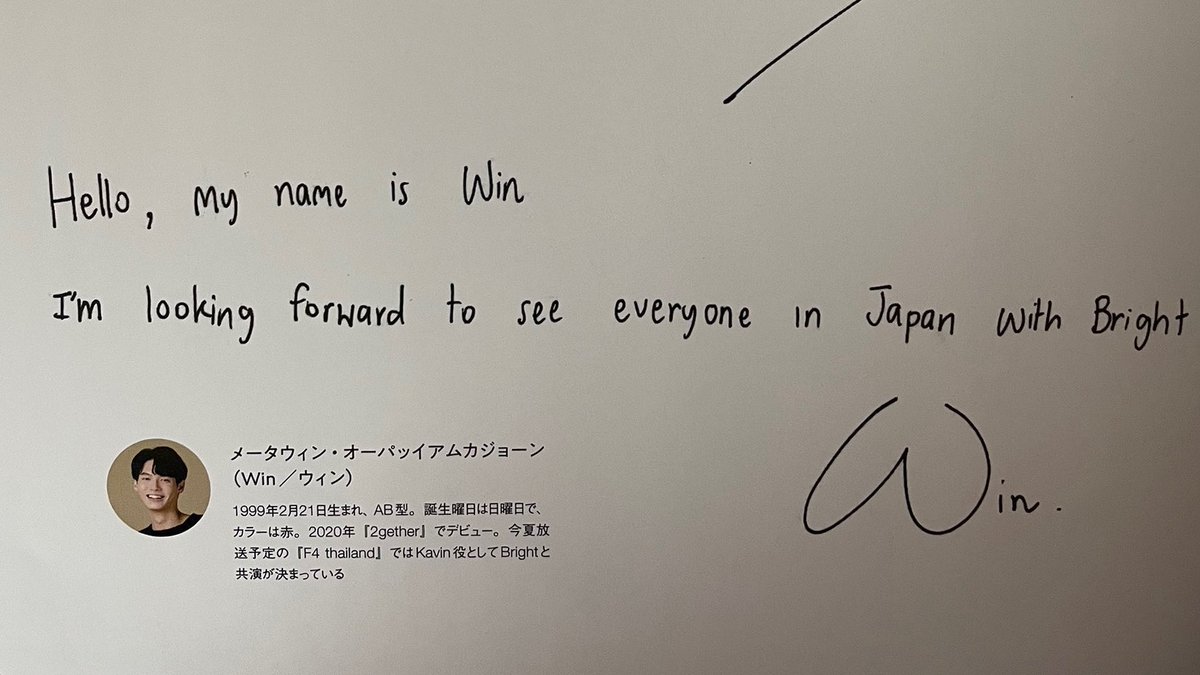 Hello, my name is Win
I'm looking forward to see everyone in Japan with Bright
Win.
メータウィン・オーパッイアムカジョーン
（Win／ウィン）
1999年2月21日生まれ、AB型。誕生曜日は日曜日で、
カラーは赤。2020年『2gether』でデビュー。今夏放
送予定の『F4 thailand』ではKavin役としてBrightと
共演が決まっている